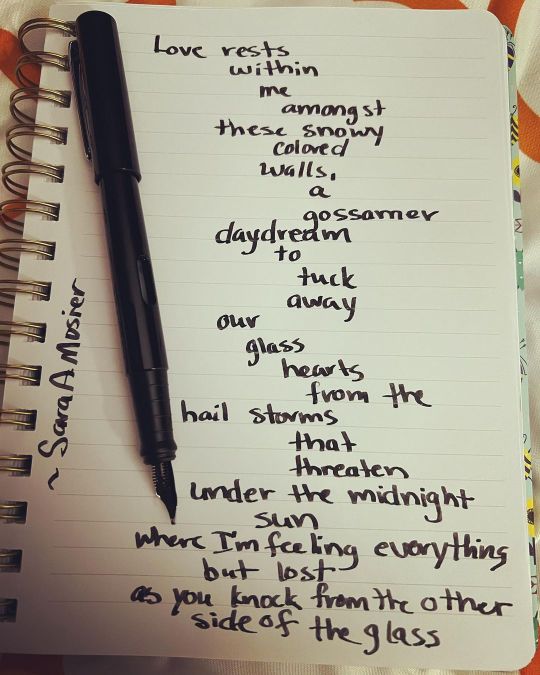 Love rests
within
me
amongst
these snowy
colored
walls,
a
gossamer
daydream
to
tuck
away
our
glass
hearts
from the
hail storms
that
threaten
under the midnight
sun
where I'm feeling everything
but lost
as you knock from the other
side of the glass
~ Sara A Mosier